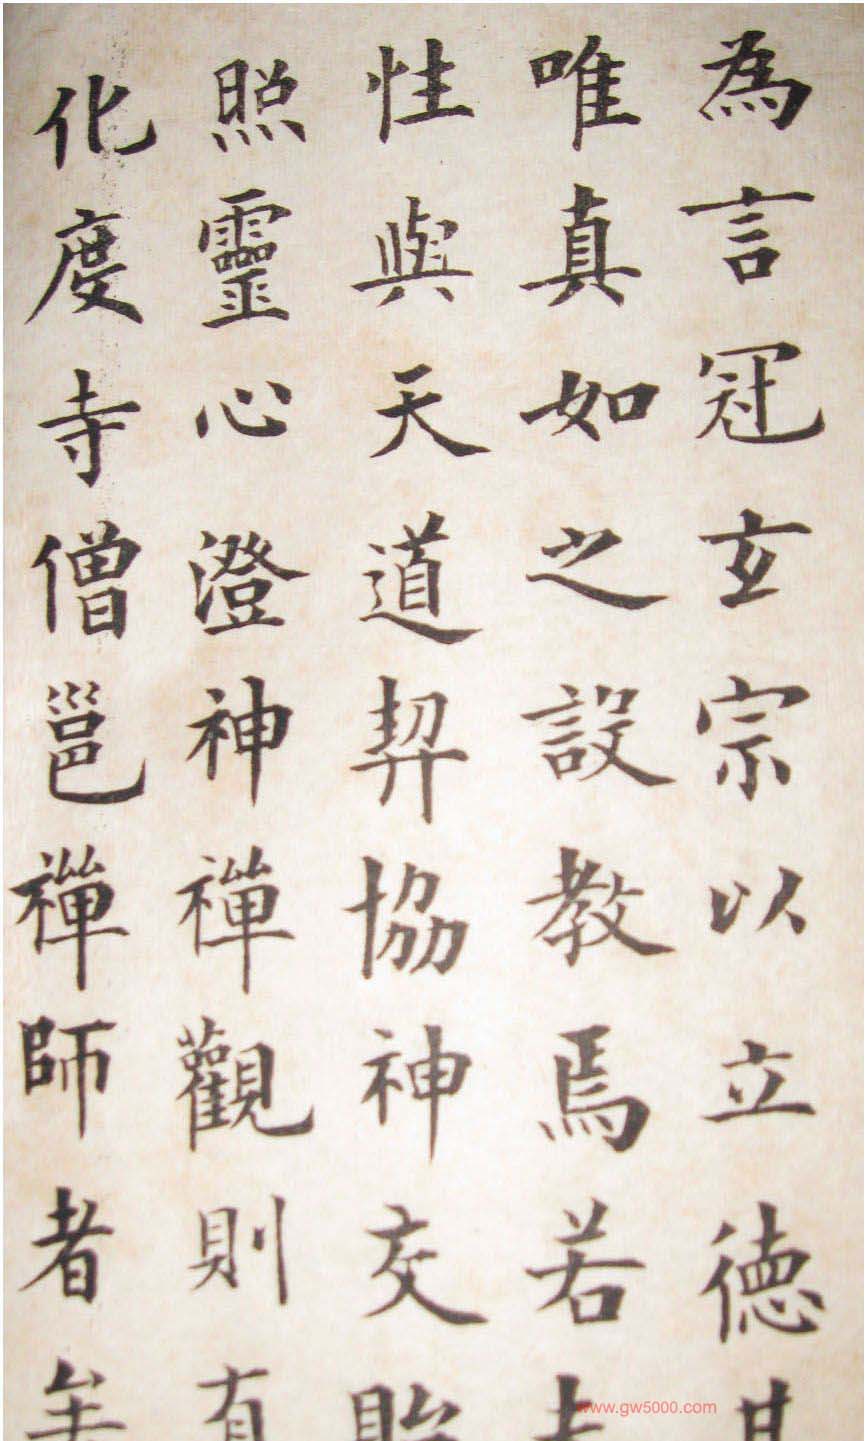 為言冠玄宗以立德其
唯真如之設教焉若夫
性與天道契協神交貽
照靈心澄神禪觀則有
化度寺僧邕禪師者矣
www.gw5000.com